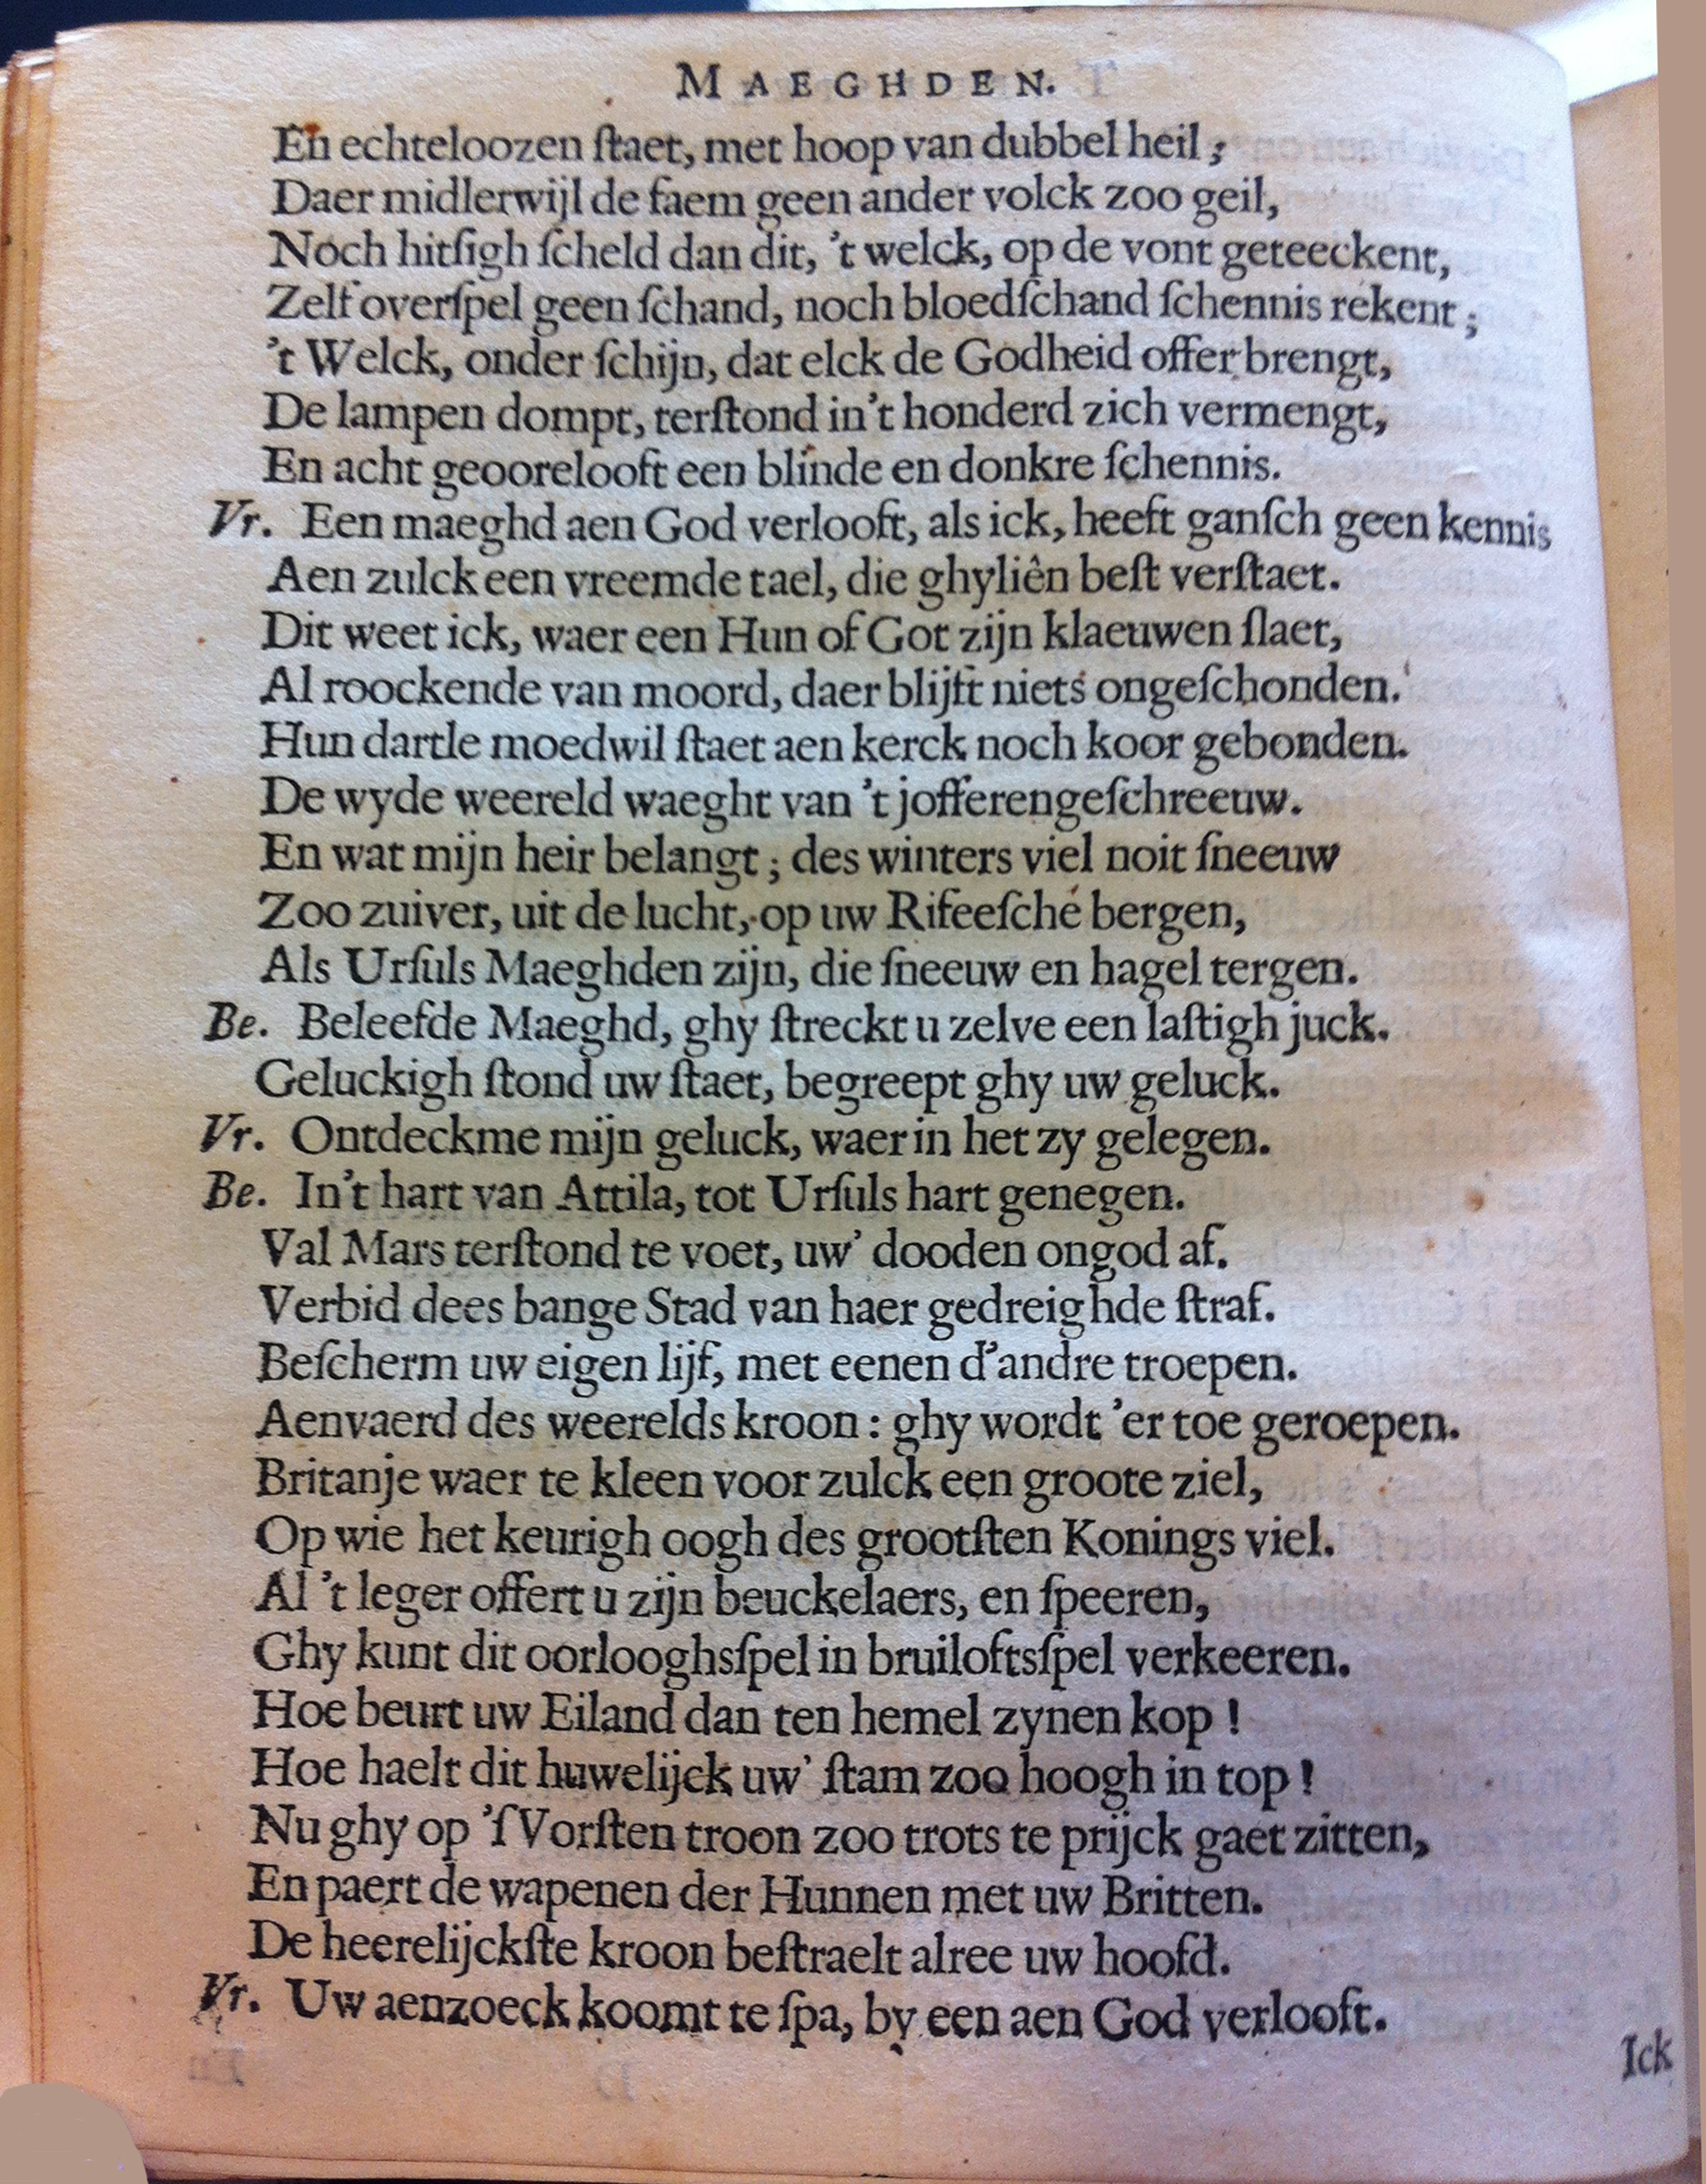 MAEGHDEN.
En echteloozen ſtaet, met hoop van dubbel heil;
Daer midlerwijl de faem geen ander volck zoo geil,
Noch hitſigh ſcheld dan dit, 't welck, op de vont geteeckent,
Zelf overſpel geen ſchand, noch bloedſchand ſchennis rekent;
't Welck, onder ſchijn, dat elck de Godheid offer brengt,
De lampen dompt, terſtond in't honderd zich vermengt,
En acht geoorelooft een blinde en donkre ſchennis.
Vr. Een maeghd aen God verlooft, als ick, heeft ganſch geen kennis
Aen zulck een vreemde tael, die ghyliên beſt verſtaet.
Dit weet ick, waer een Hun of Got zijn klaeuwen ſlaet,
Al roockende van moord, daer blijft niets ongeſchonden.
Hun dartle moedwil ſtaet aen kerck noch koor gebonden.
De wyde weereld waeght van 't jofferengeſchreeuw.
En wat mijn heir belangt; des winters viel noit ſneeuw
Zoo zuiver, uit de lucht, op uw Rifeeſche bergen,
Als Urſuls Maeghden zijn, die ſneeuw en hagel tergen.
Be. Beleefde Maeghd, ghy ſtreckt u zelve een laſtigh juck.
Geluckigh ſtond uw ſtaet, begreept ghy uw geluck.
Vr. Ontdeckme mijn geluck, waer in het zy gelegen.
Be. In't hart van Attila, tot Urſuls hart genegen.
Val Mars terſtond te voet, uw' dooden ongod af.
Verbid dees bange Stad van haer gedreighde ſtraf.
Beſcherm uw eigen lijf, met eenen d'andre troepen.
Aenvaerd des weerelds kroon: ghy wordt 'er toe geroepen.
Britanje waer te kleen voor zulck een groote ziel,
Op wie het keurigh oogh des grootſten Konings viel.
Al 't leger offert u zijn beuckelaers, en ſpeeren,
Ghy kunt dit oorlooghsſpel in bruiloftsſpel verkeeren.
Hoe beurt uw Eiland dan ten hemel zynen kop!
Hoe haelt dit huwelijck uw' ſtam zoo hoogh in top!
Nu ghy op 'ſVorſten troon zoo trots te prijck gaet zitten,
En paert de wapenen der Hunnen met uw Britten.
De heerelijckſte kroon beſtraelt alree uw hoofd.
Vr. Uw aenzoeck koomt te ſpa, by een aen God verlooft.
Ick